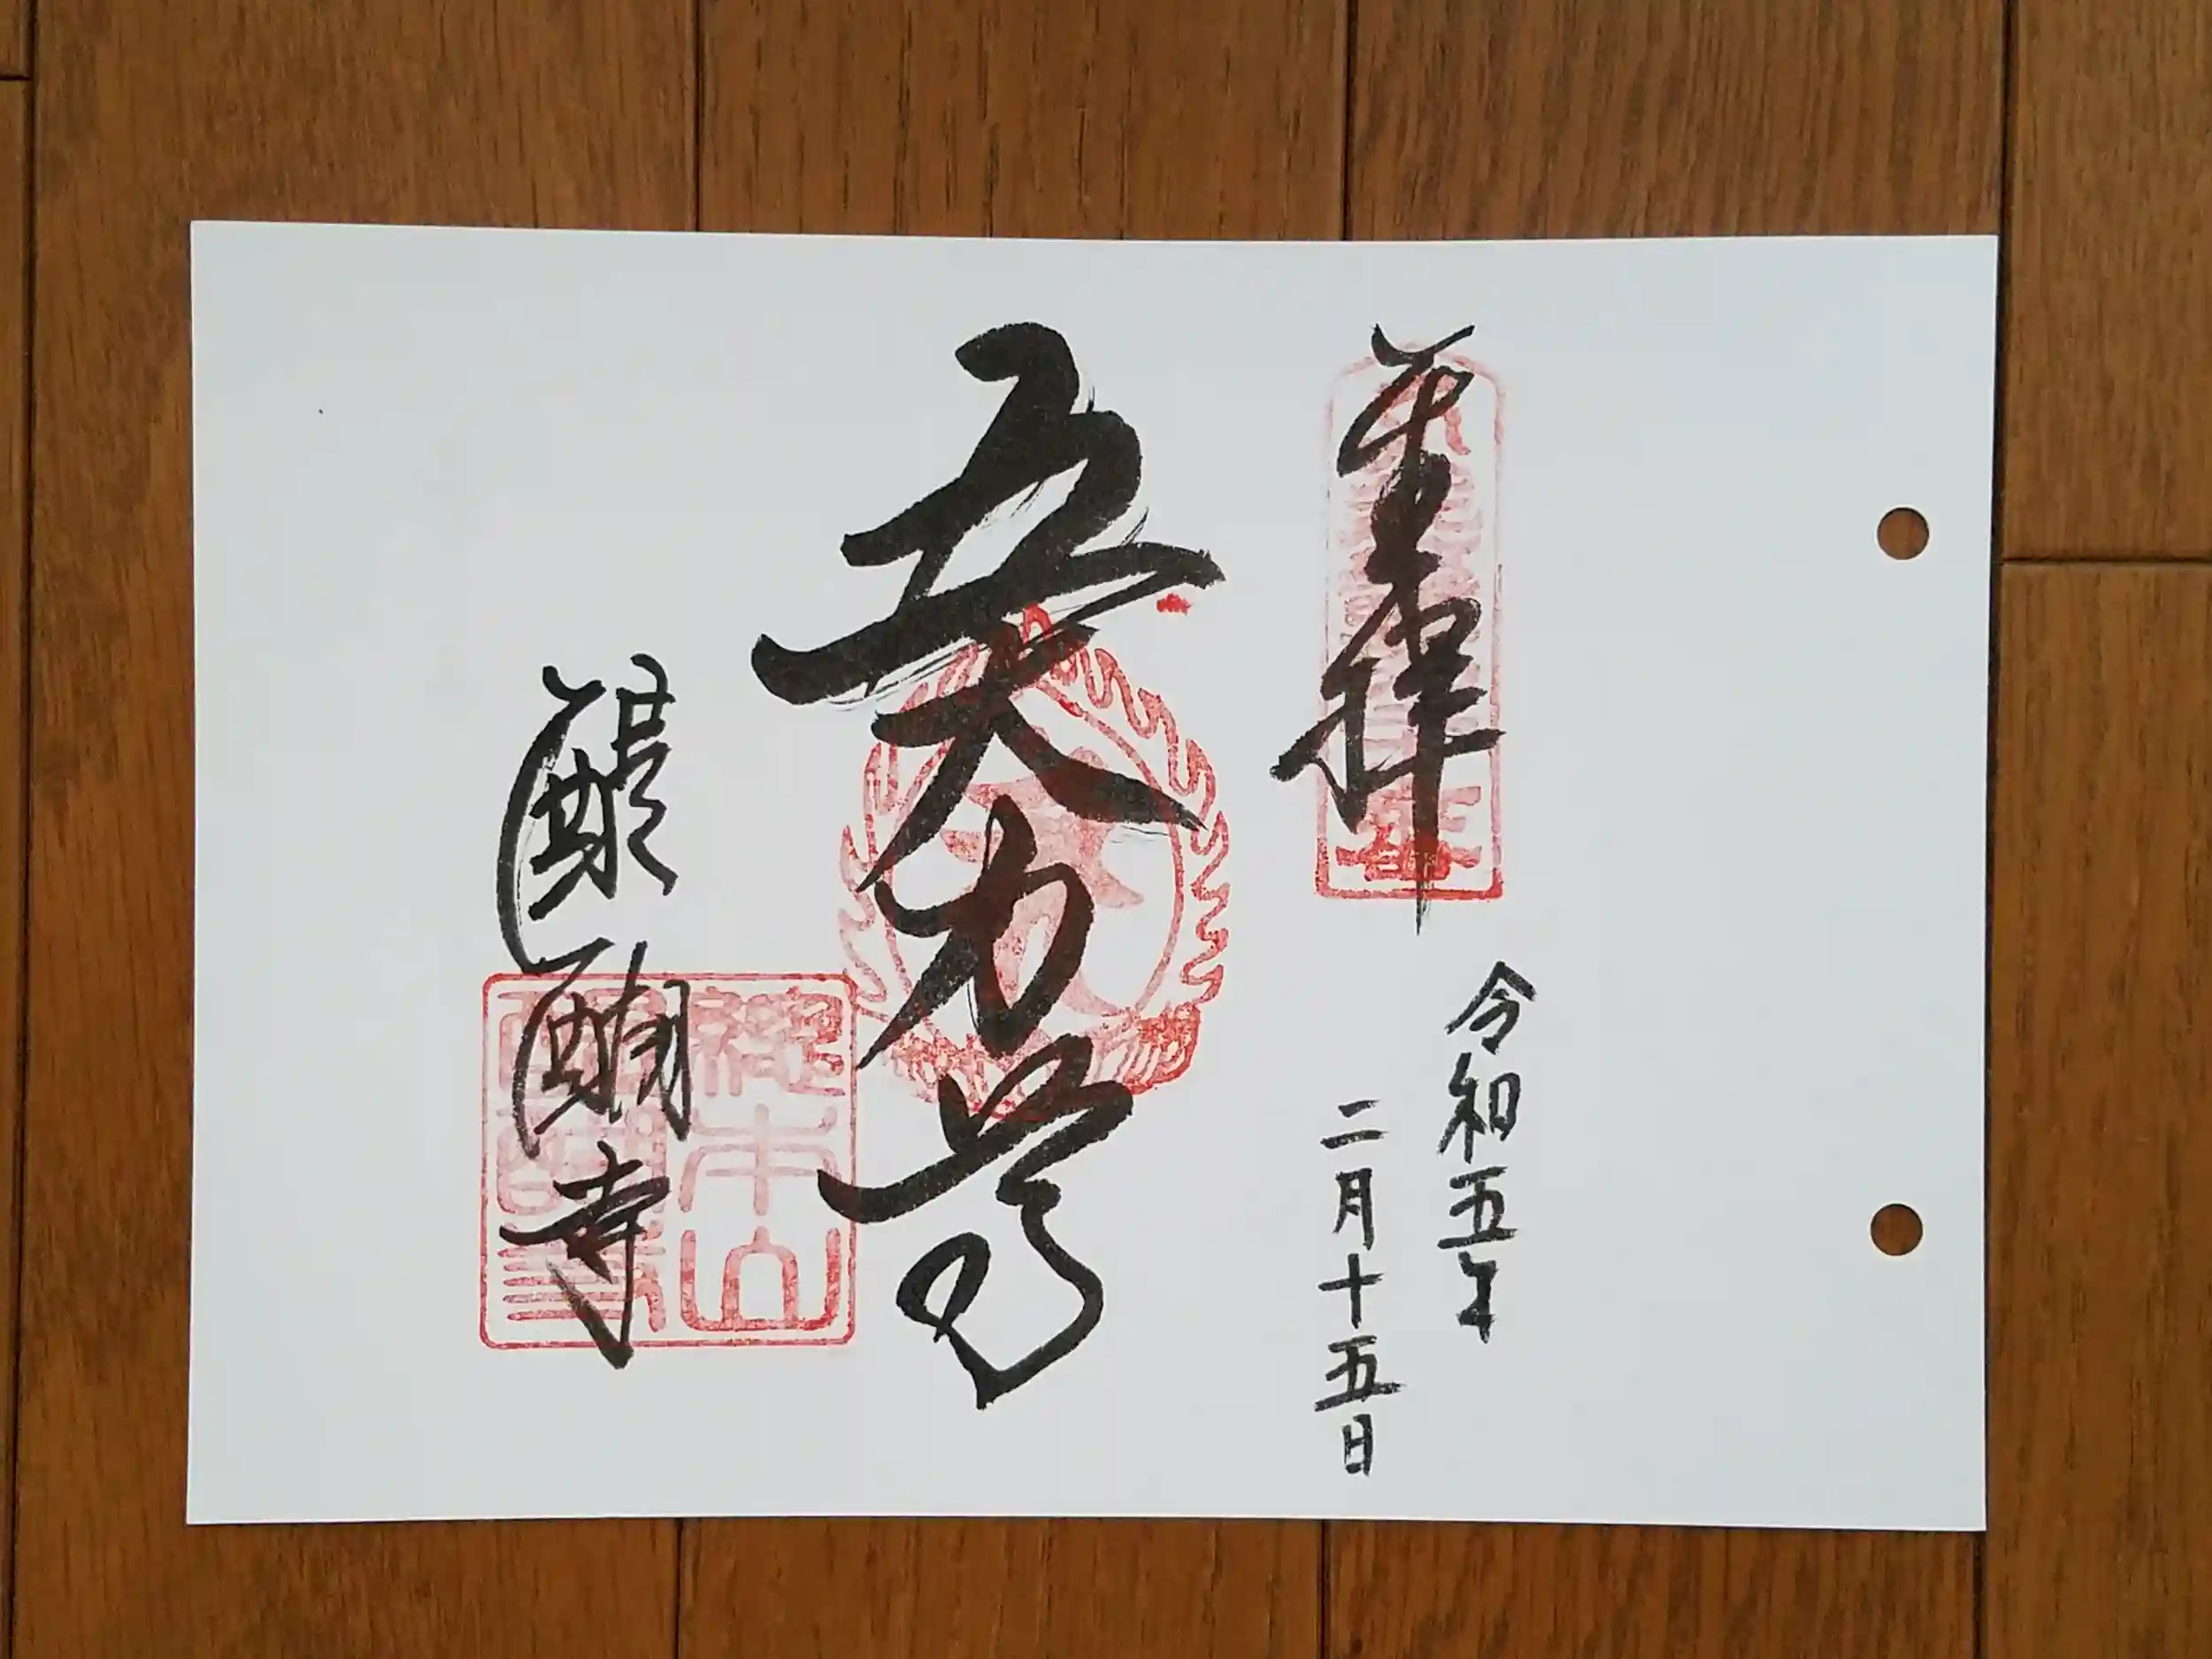 奉拝
令和五年
二月十五日
五大力尊
醍醐寺
総本山
醍醐寺